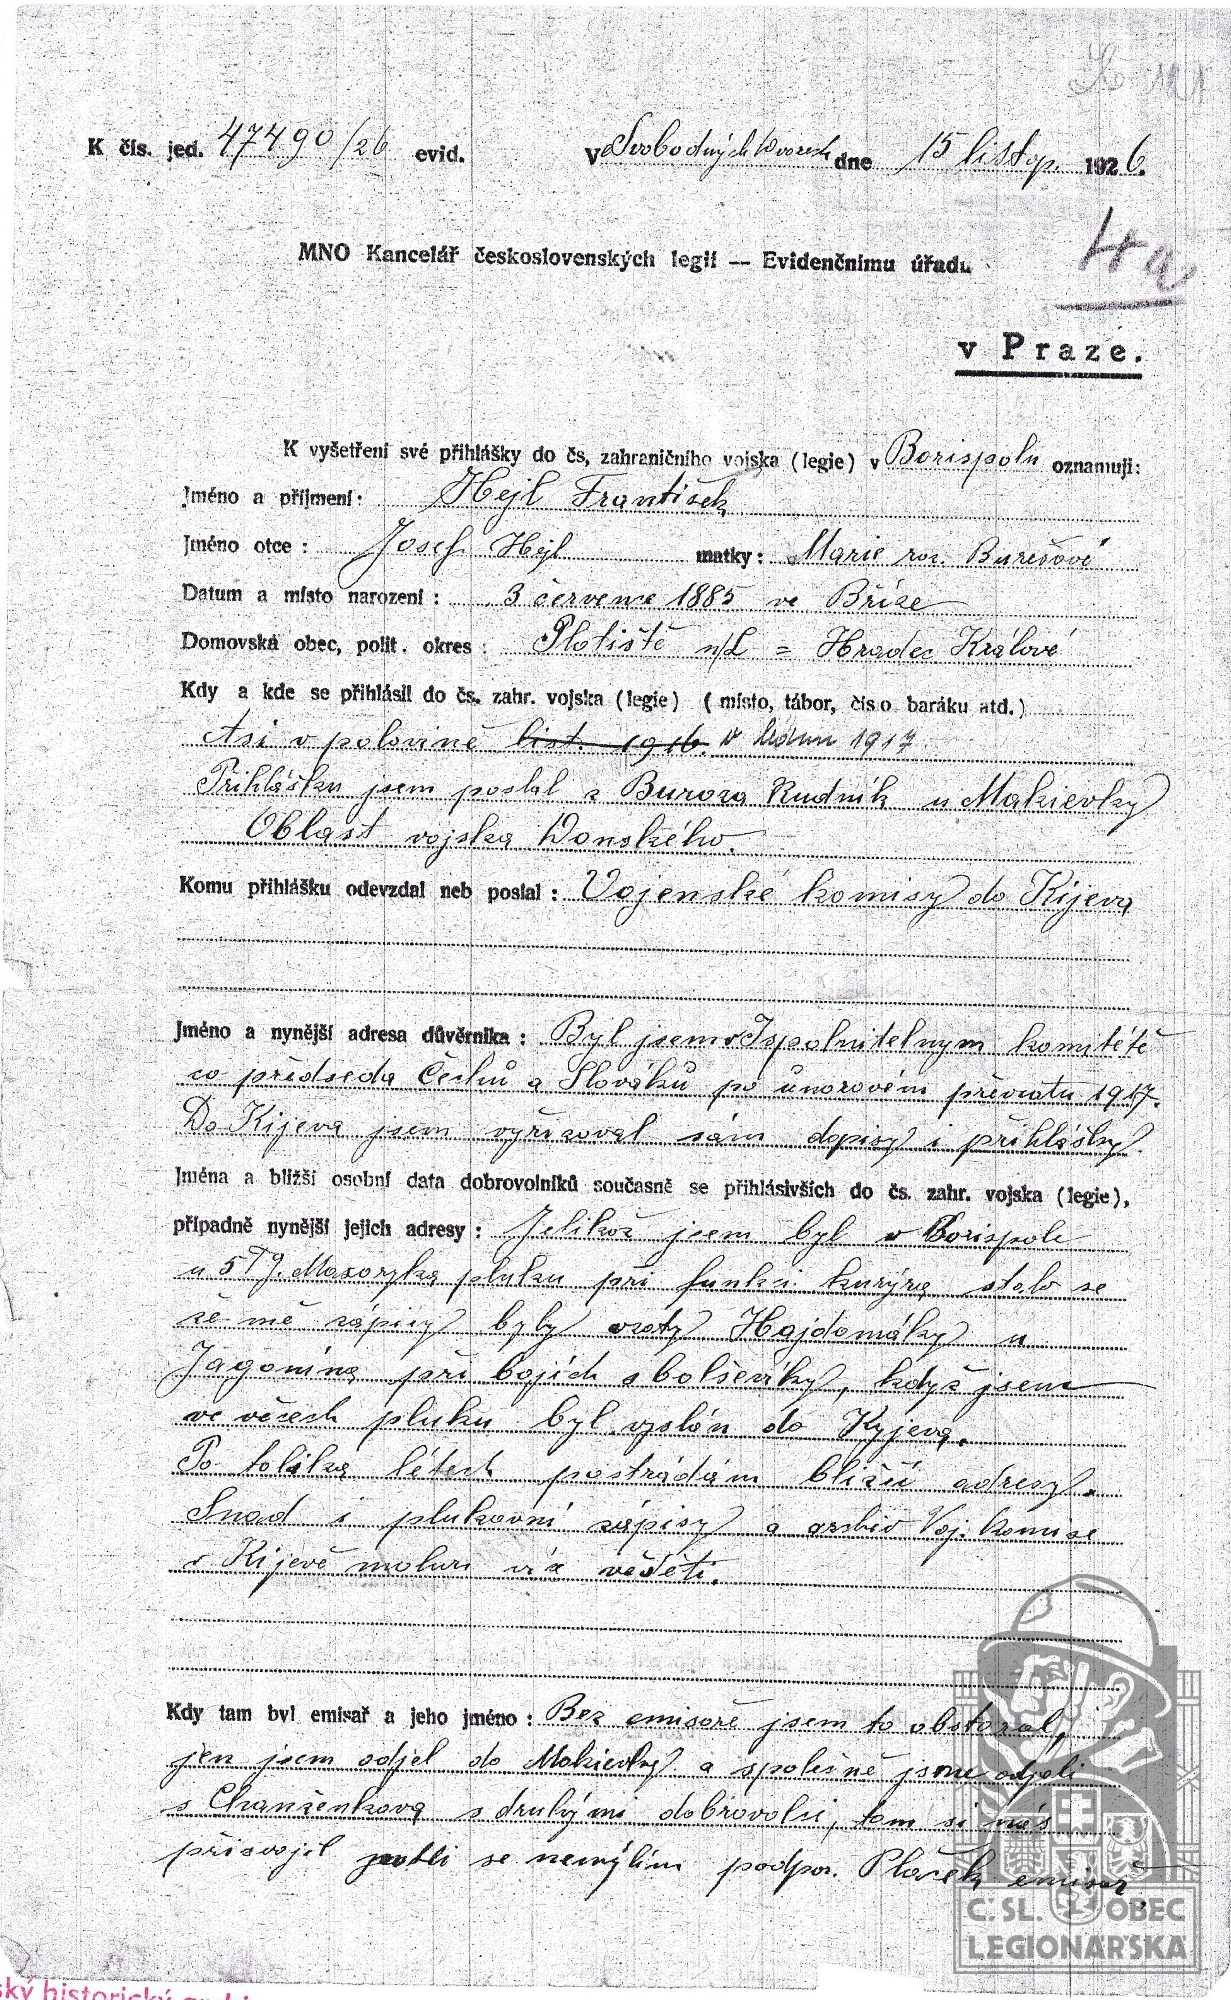 K čís. jed. 47490/26 evid. Ve Svobodných Dvorech dne 15 listop. 1926.
4a
MNO Kancelář československých legií — Evidenčnímu úřadu
v Praze.
K vyšetření své přihlášky do čs. zahraničního vojska (legie) v Borispolu oznamuji:
Jméno a příjmení: Hejl František
Jméno otce: Josef Hejl matky: Marie roz. Burešové
Datum a místo narození: 3 července 1885 ve Bříze
Domovská obec, polit. okres: Plotiště n/L = Hradec Králové
Kdy a kde se přihlásil do čs. zahr. vojska (legie) (místo, tábor, číslo baráku atd.)
Asi v polovině list. 1916. v únoru 1917
Přihlášku jsem poslal z Buroza Rudnik u Makievky
Oblast vojska Donského.
Komu přihlášku odevzdal neb poslal: Vojenské komisy do Kijeva
Jméno a nynější adresa důvěrníka: Byl jsem v Ispolnitelnym komitétě
co předseda Čechů a Slováků po únorovém převratu 1917.
Do Kijeva jsem vyřizoval sám dopisy i přihlášky.
Jména a bližší osobní data dobrovolníků současně se přihlásivších do čs. zahr. vojska (legie),
případně nynější jejich adresy: Jelikož jsem byl v Borispole
u 5 T.g. Masaryka pluku při funkci kurýra stalo se
že mě zápisy byly vzaty Hajdamáky u
Jagonina při bojích s bolševiky, když jsem
ve věcech pluku byl vyslán do Kyjeva.
Po tolika létech postrádám bližší adresy.
Snad i plukovní zápisy a archiv Voj. komise
v Kijevě mohou víc věděti.
Kdy tam byl emisař a jeho jméno: Bez emisaře jsem to obstaral,
jen jsem odjel do Makievky a společně jsme odjeli
s Chanženkova s druhými dobrovolci, tam si nás
přisvojil jestli se nemýlím podpor. Plaček emisař.
Č. SL. OBEC
LEGIONÁŘSKÁ
ský historický